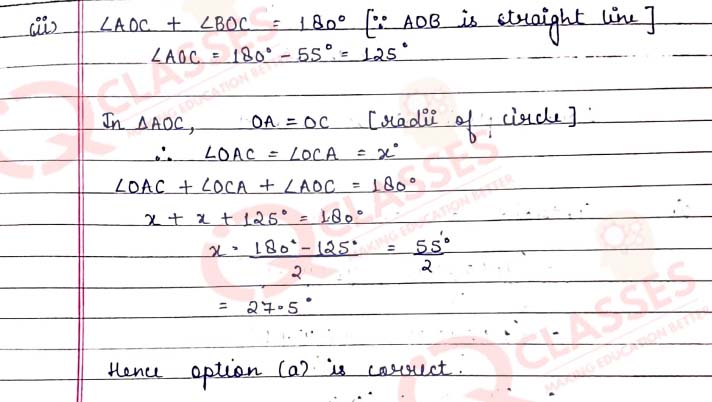 (ii) ∠AOC + ∠BOC = 180° [∵ AOB is straight line]
∠AOC = 180° - 55° = 125°
In ΔAOC, OA = OC [radii of circle]
∴ ∠OAC = ∠OCA = x°
∠OAC + ∠OCA + ∠AOC = 180°
x + x + 125° = 180°
x = 180° - 125° / 2 = 55° / 2
= 27.5°
Hence option (a) is correct.
CLASSES
MAKING EDUCATION BETTER
CLASSES
MAKING EDUCATION BETTER
CLASSES
MAKING EDUCATION BETTER